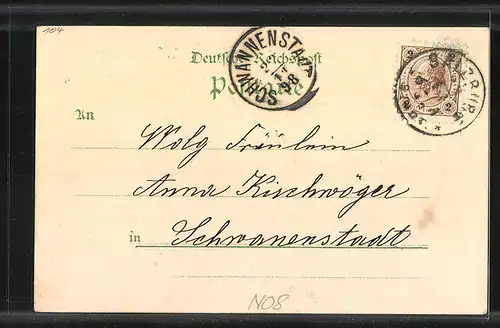 104
Deutsche Reichspost
Postkarte
SCHWANNENSTADT
2 11
98
SALZBURG
2 2
2 2
An
Wolg Fräulein
Anna Kischwöger
in Schwanenstadt
NO8